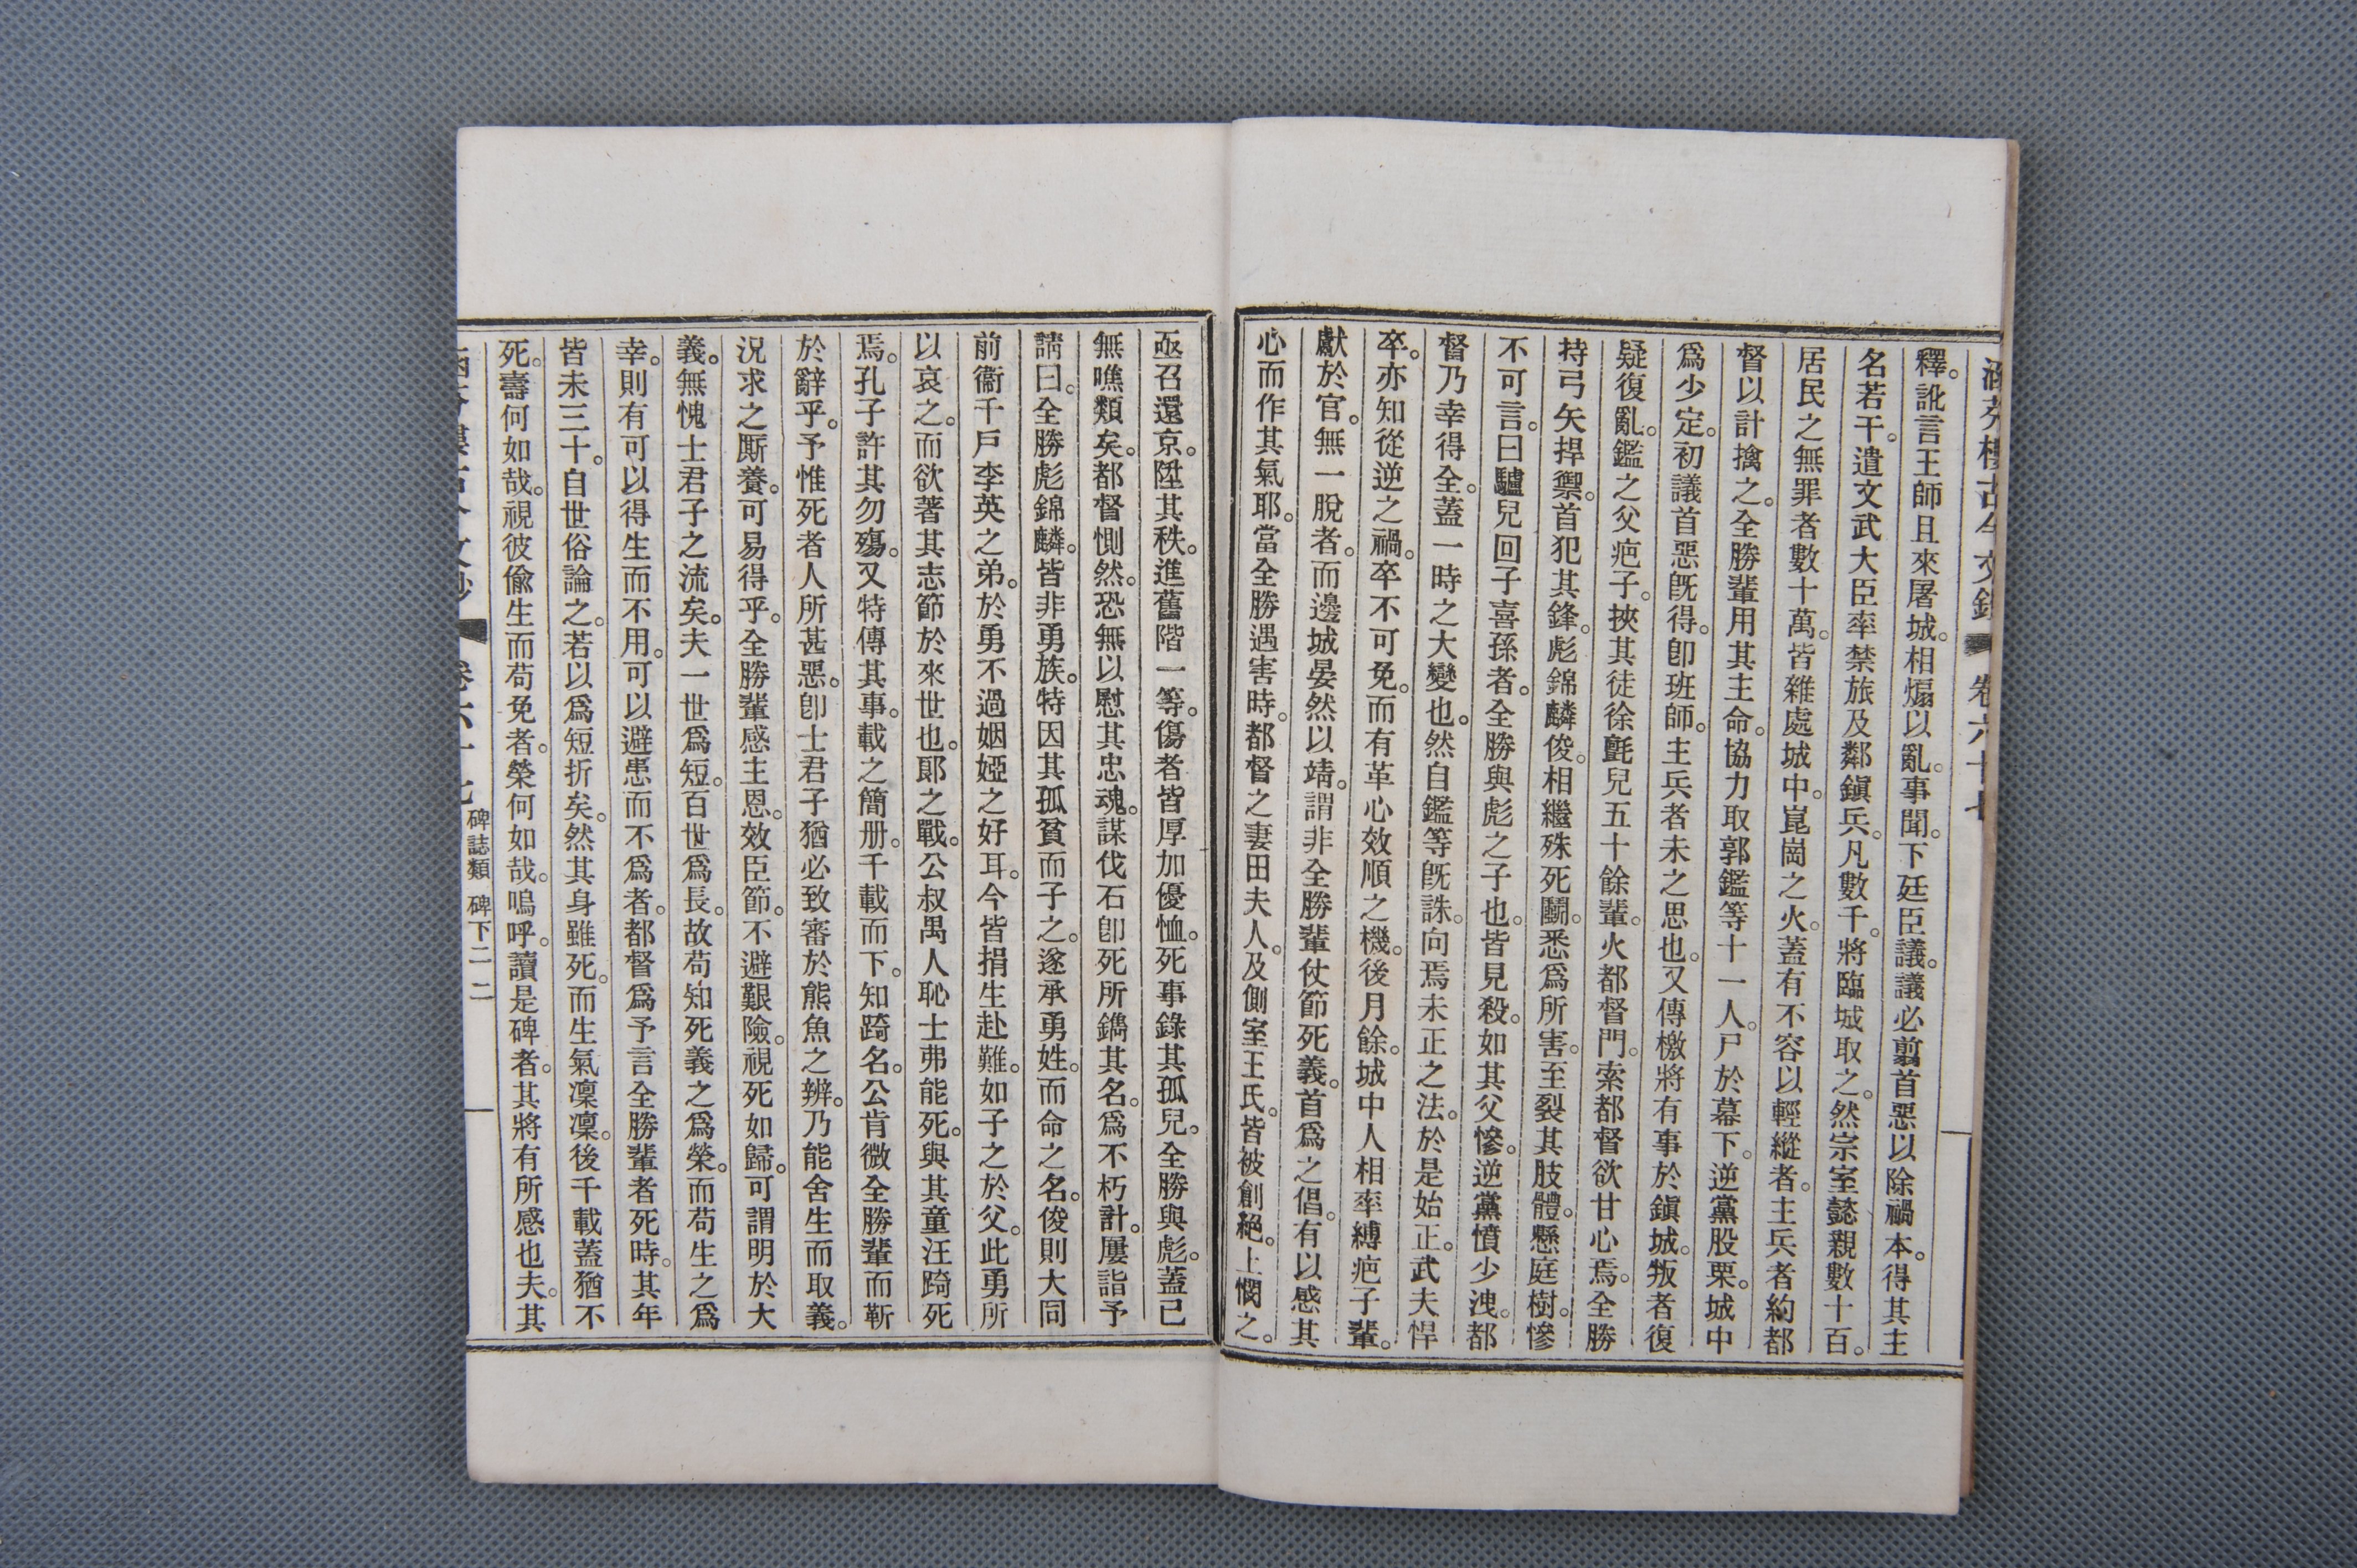 涵芬樓古今文鈔 卷六十七
釋。訛言王師且來屠城。相煽以亂。事聞。下廷臣議。議必翦首惡以除禍本。得其主
名若干。遣文武大臣率禁旅及鄰鎭兵。凡數千。將臨城取之。然宗室懿親數十百。
居民之無罪者數十萬。皆雜處城中。崑崗之火。蓋有不容以輕縱者。主兵者約都
督以計擒之。全勝輩用其主命。協力取郭鑑等十一人。尸於幕下。逆黨股栗。城中
爲少定。初議首惡旣得。卽班師。主兵者未之思也。又傳檄將有事於鎭城。叛者復
疑復亂。鑑之父疤子。挾其徒徐氈兒五十餘輩。火都督門。索都督欲甘心焉。全勝
持弓矢捍禦。首犯其鋒。彪錦麟俊。相繼殊死鬬。悉爲所害。至裂其肢體。懸庭樹。慘
不可言。曰驢兒回子喜孫者。全勝與彪之子也。皆見殺。如其父慘。逆黨憤少洩。都
督乃幸得全。蓋一時之大變也。然自鑑等旣誅。向焉未正之法。於是始正。武夫悍
卒。亦知從逆之禍。卒不可免。而有革心效順之機。後月餘。城中人相率縛疤子輩。
獻於官。無一脫者。而邊城晏然以靖。謂非全勝輩仗節死義。首爲之倡。有以感其
心而作其氣耶。當全勝遇害時。都督之妻田夫人。及側室王氏。皆被創絕。上憫之。
亟召還京。陞其秩。進舊階一等。傷者皆厚加優恤。死事錄其孤兒。全勝與彪。蓋已
無噍類矣。都督惻然。恐無以慰其忠魂。謀伐石卽死所鐫其名。爲不朽計。屢詣予
請曰。全勝彪錦麟。皆非勇族。特因其孤貧而子之。遂承勇姓。而命之名。俊則大同
前衞千戶李英之弟。於勇不過姻婭之好耳。今皆捐生赴難。如子之於父。此勇所
以哀之。而欲著其志節於來世也。郞之戰。公叔禺人恥士弗能死。與其童汪踦死
焉。孔子許其勿殤。又特傳其事。載之簡册。千載而下。知踦名。公肯微全勝輩而靳
於辭乎。予惟死者人所甚惡。卽士君子猶必致審於熊魚之辨。乃能舍生而取義。
況求之厮養。可易得乎。全勝輩感主恩。效臣節。不避艱險。視死如歸。可謂明於大
義。無愧士君子之流矣。夫一世爲短。百世爲長。故苟知死義之爲榮。而苟生之爲
幸。則有可以得生而不用。可以避患而不爲者。都督爲予言全勝輩者死時。其年
皆未三十。自世俗論之。若以爲短折矣。然其身雖死。而生氣凜凜。後千載蓋猶不
死。壽何如哉。視彼偷生而苟免者。榮何如哉。嗚呼。讀是碑者。其將有所感也夫。其
涵芬樓古今文鈔 卷六十七 碑誌類 碑下二 二